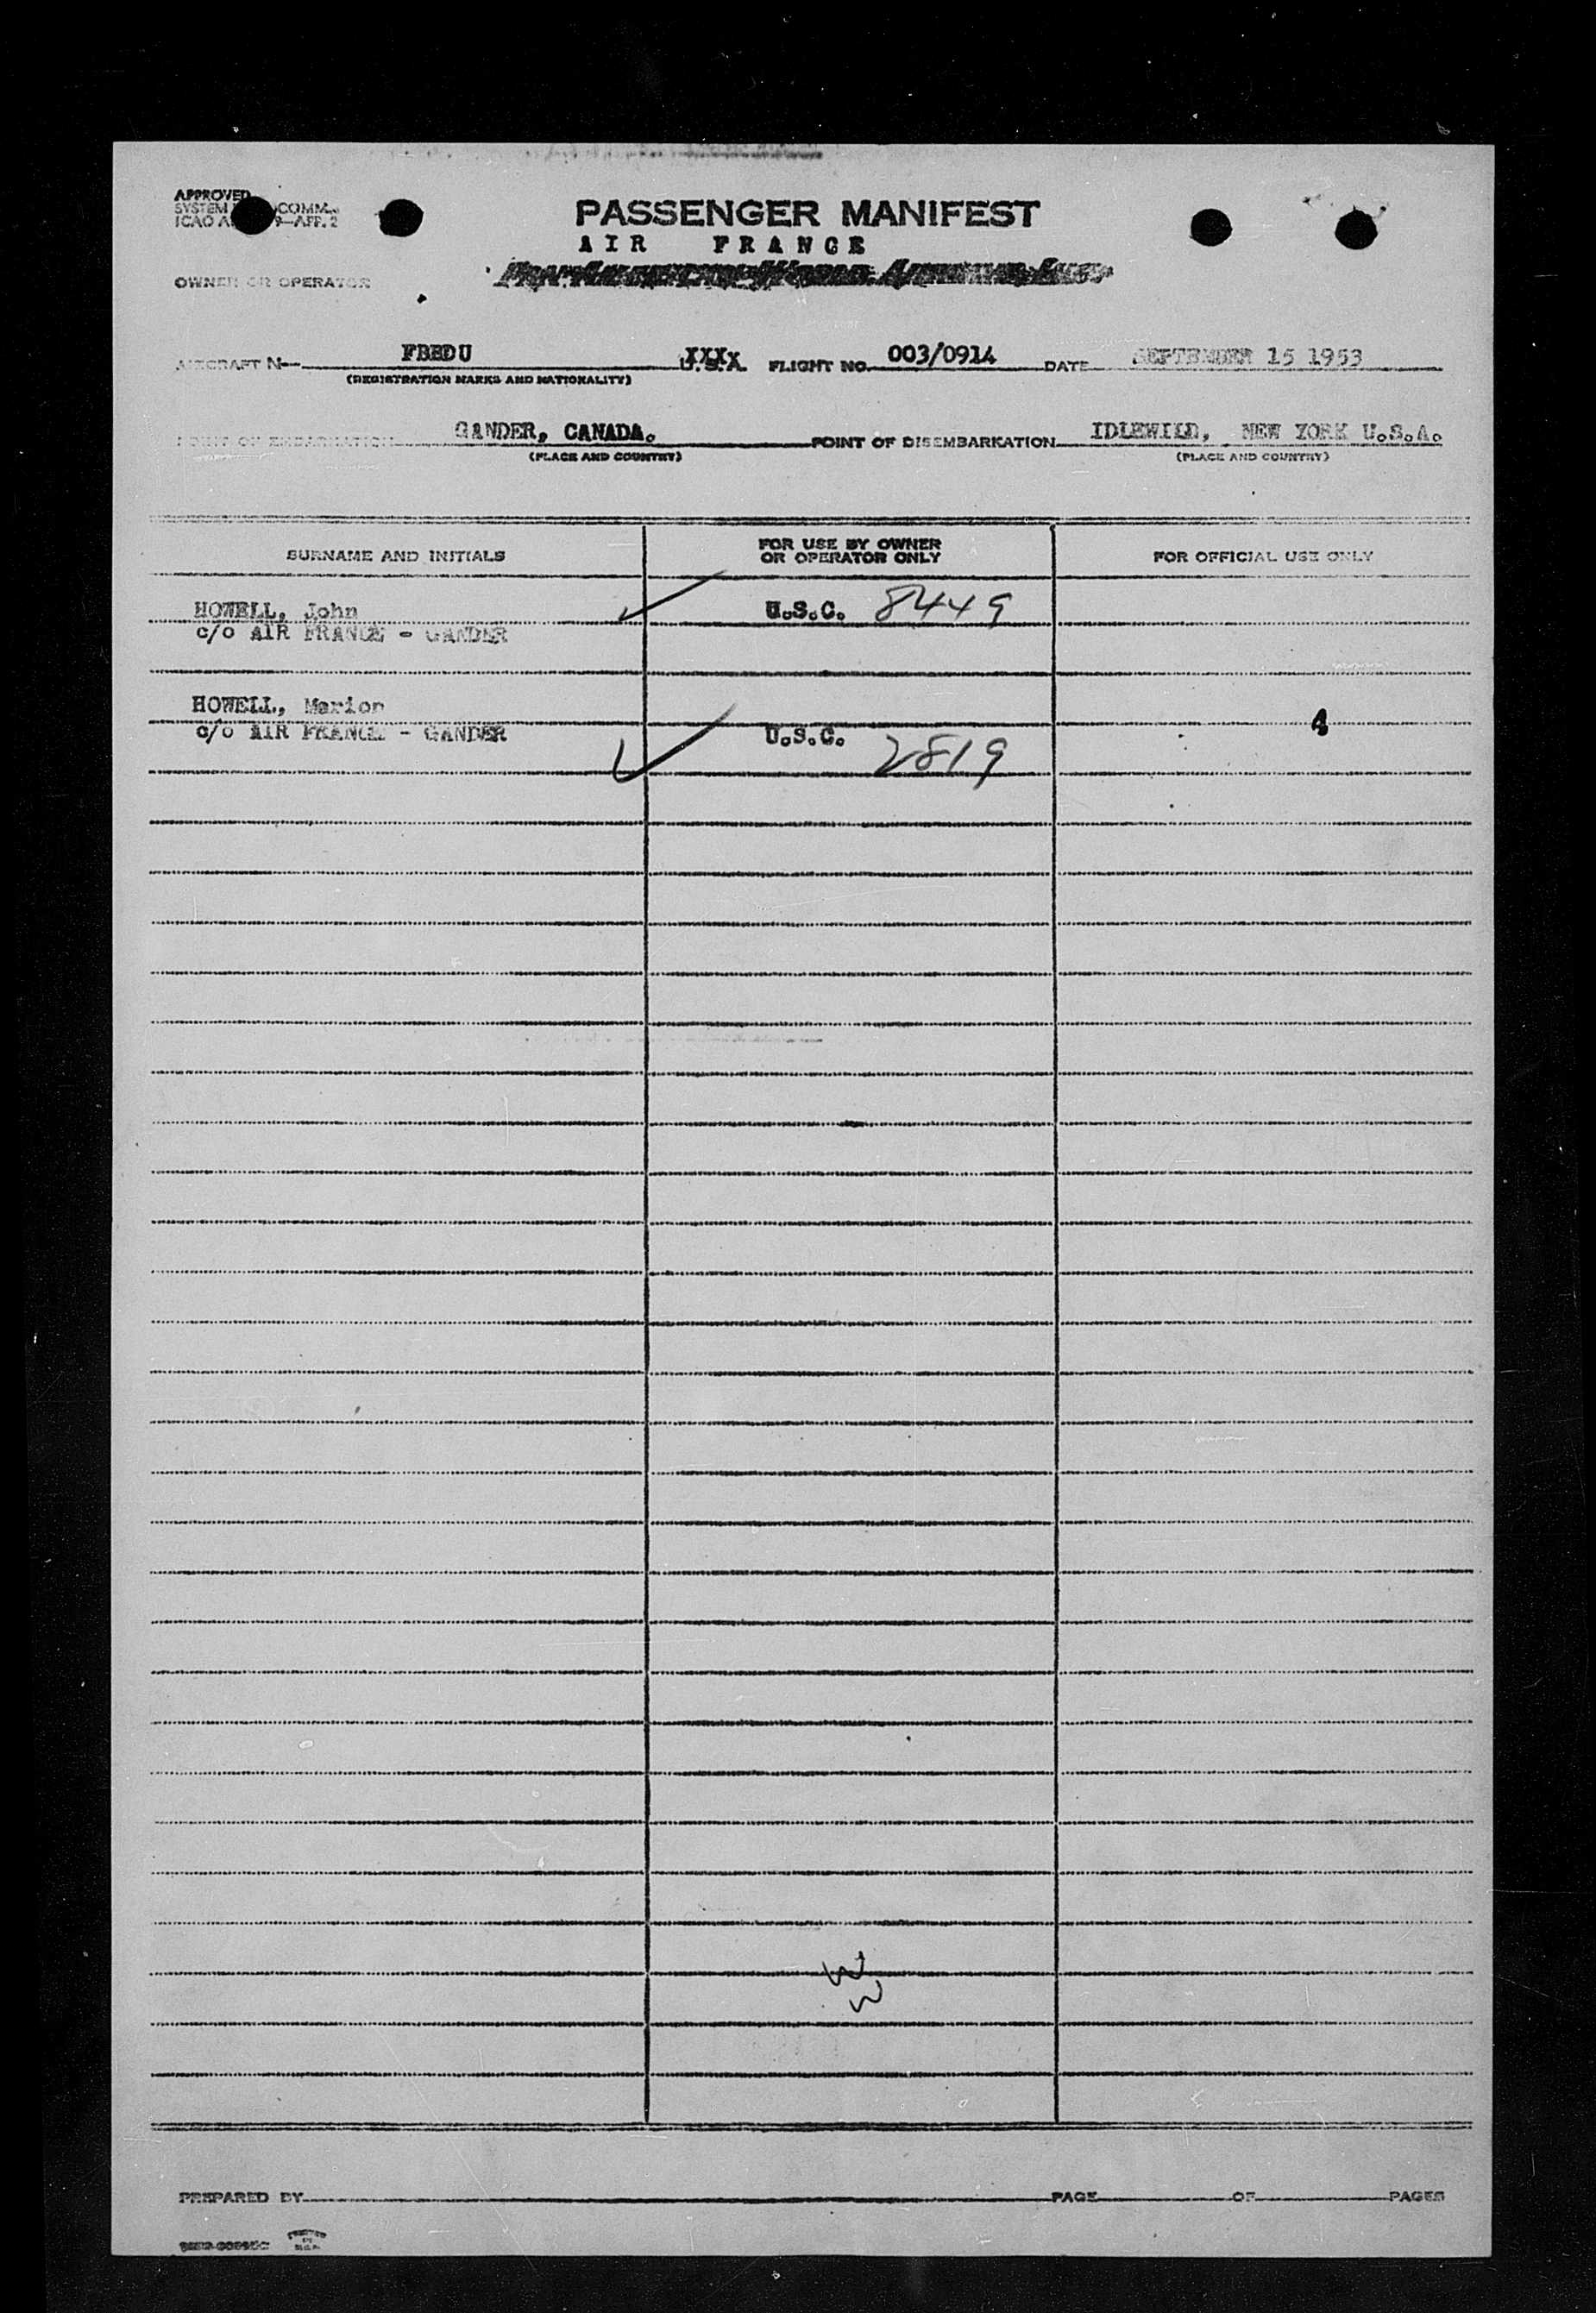 APPROVED
SYSTEM COMM.
ICAO A 9—APP. 2
PASSENGER MANIFEST
AIR FRANCE
OWNER OR OPERATOR
AIRCRAFT N— FBEDU U.S.A. XXXX FLIGHT NO. 003/0914 DATE SEPTEMBER 15 1953
(REGISTRATION MARKS AND NATIONALITY)
POINT OF EMBARKATION GANDER, CANADA. POINT OF DISEMBARKATION IDLEWILD, NEW YORK U.S.A.
(PLACE AND COUNTRY) (PLACE AND COUNTRY)
SURNAME AND INITIALS FOR USE BY OWNER OR OPERATOR ONLY FOR OFFICIAL USE ONLY
HOWELL, John U.S.C. 8449
c/o AIR FRANCE - GANDER
HOWELL, Marion 4
c/o AIR FRANCE - GANDER U.S.C. 2819
PREPARED BY PAGE OF PAGES